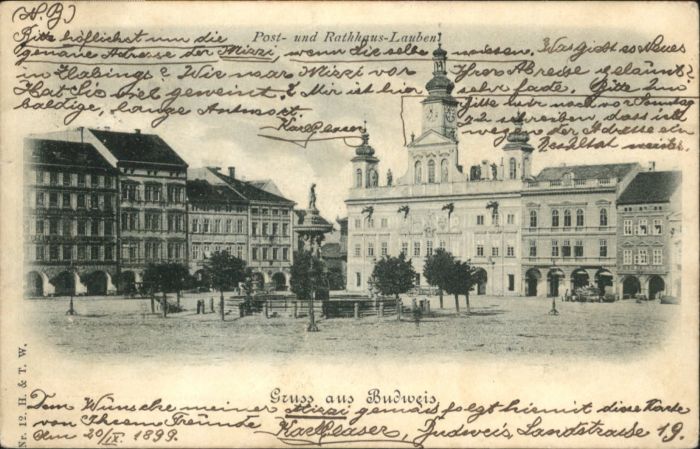 (N.B)
Post- und Rathhaus-Lauben
Bitte höflichst um die
genaue Adresse der Mizzi, wenn Sie selbe wissen. Was giebt es Neues
in Zlabings? Wie war Mizzi vor Ihrer Abreise gelaunt?
Hat Sie viel geweint? Mir ist hier sehr fade. Bitte um
baldige, lange Antwort
Karl Glaser
Bitte mir noch vor Sonntag
zu schreiben, dass ich
wegen der Adresse ein
Resultat weiss.
Gruss aus Budweis.
Dem Wunsche meiner Mizzi gemäss folgt hiermit diese Karte
von Ihrem Freunde Karl Glaser, Budweis, Landstrasse 19.
Am 20/IX. 1899.
Nr. 12. H. & T. W.